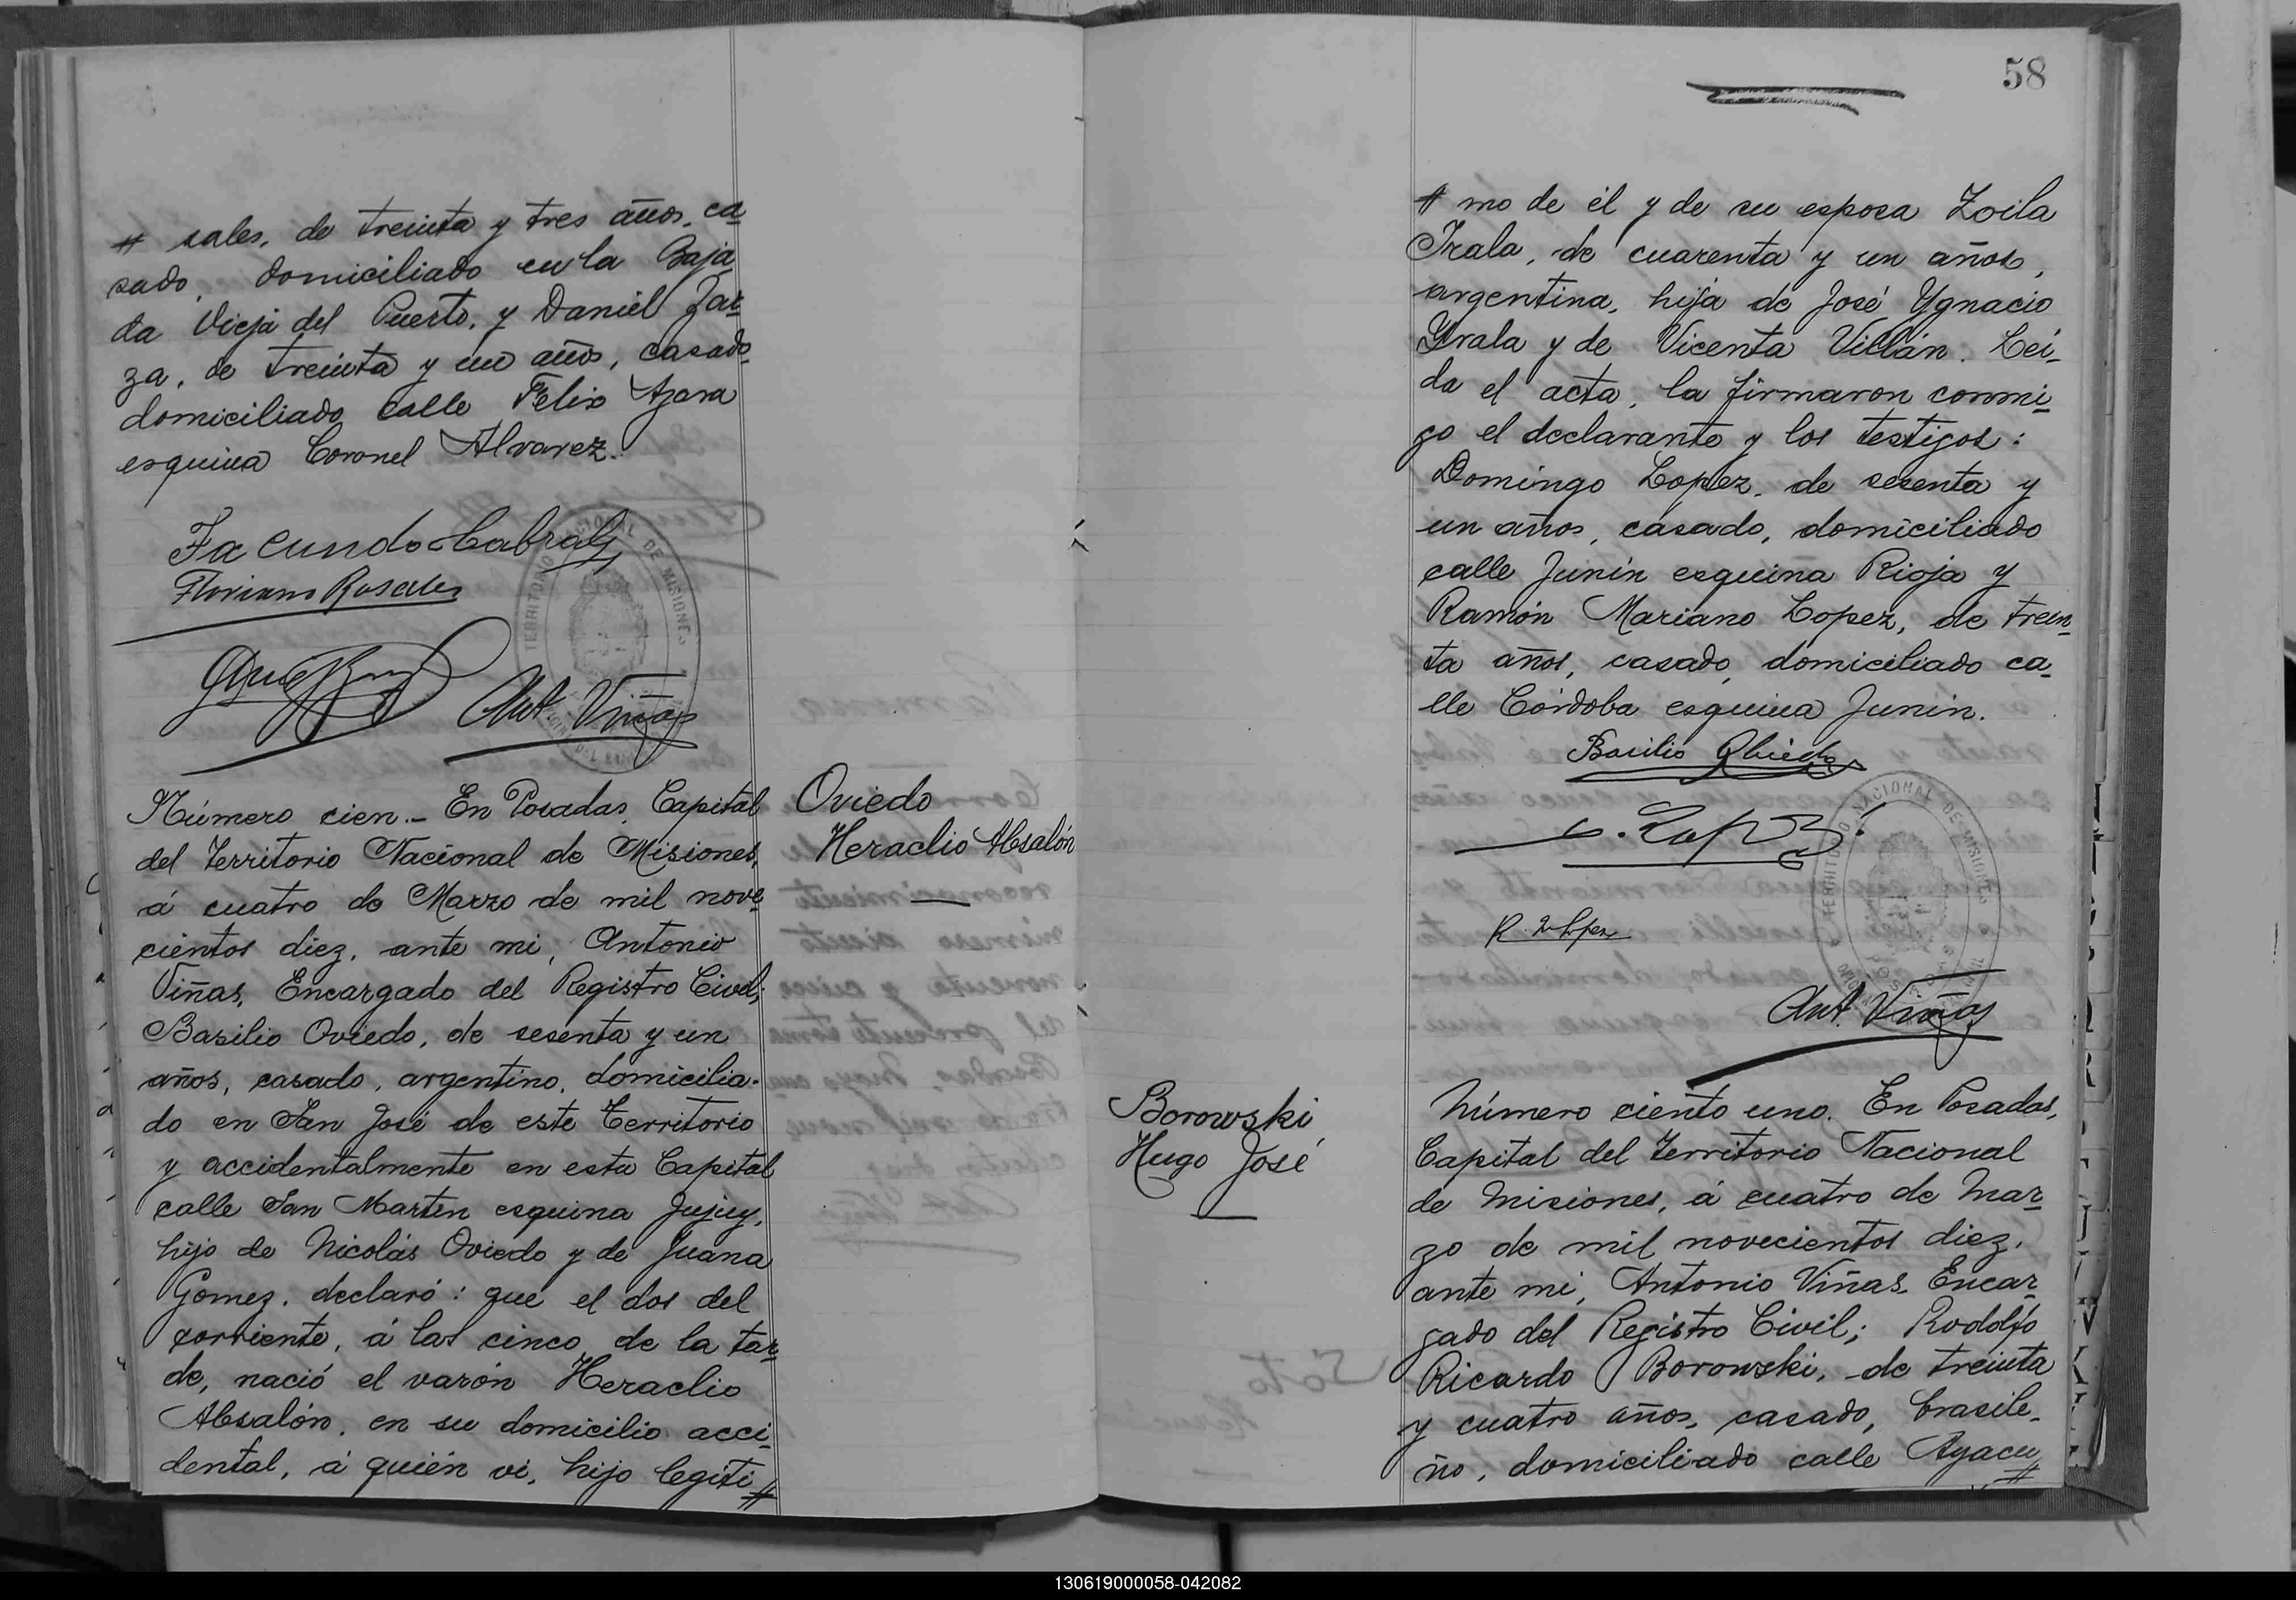 # sales, de treinta y tres años, ca
sado, domiciliado en la Baja
da Vieja del Puerto, y Daniel Zar
za, de treinta y un años, casado
domiciliado calle Felix Azara
esquina Coronel Alvarez.
Facundo Cabral
Floriano Rosales
TERRITORIO NACIONAL DE MISIONES
Ant. Viñas
Número cien.- En Posadas, Capital
del Territorio Nacional de Misiones,
á cuatro de Marzo de mil nove
cientos diez, ante mi, Antonio
Viñas, Encargado del Registro Civil;
Basilio Oviedo, de sesenta y un
años, casado, argentino, domicilia-
do en San José de este Territorio
y accidentalmente en esta Capital
calle San Martin esquina Jujuy,
hijo de Nicolás Oviedo y de Juana
Gomez, declaró: que el dos del
corriente, á las cinco de la tar
de, nació el varón Heraclio
Absalón, en su domicilio acci
dental, á quién vi, hijo legiti #
Oviedo
Heraclio Absalón
58
# mo de él y de su esposa Zoila
Irala, de cuarenta y un años,
argentina, hija de José Ygnacio
Yrala y de Vicenta Villán. Lei-
da el acta, la firmaron conmi
go el declarante y los testigos:
Domingo Lopez, de sesenta y
un años, casado, domiciliado
calle Junin esquina Rioja y
Ramón Mariano Lopez, de trein
ta años, casado, domiciliado ca-
lle Córdoba esquina Junin.
Basilio Obiedo
Lopez
R. M Lopez
TERRITORIO NACIONAL DE MISIONES
Ant. Viñas
Borowski
Hugo José
Número ciento uno. En Posadas,
Capital del Territorio Nacional
de Misiones, á cuatro de Mar
zo de mil novecientos diez,
ante mi, Antonio Viñas, Encar
gado del Registro Civil; Rodolfo
Ricardo Borowski, de treinta
y cuatro años, casado, brasile-
ño, domiciliado calle Ayacu #
130619000058-042082